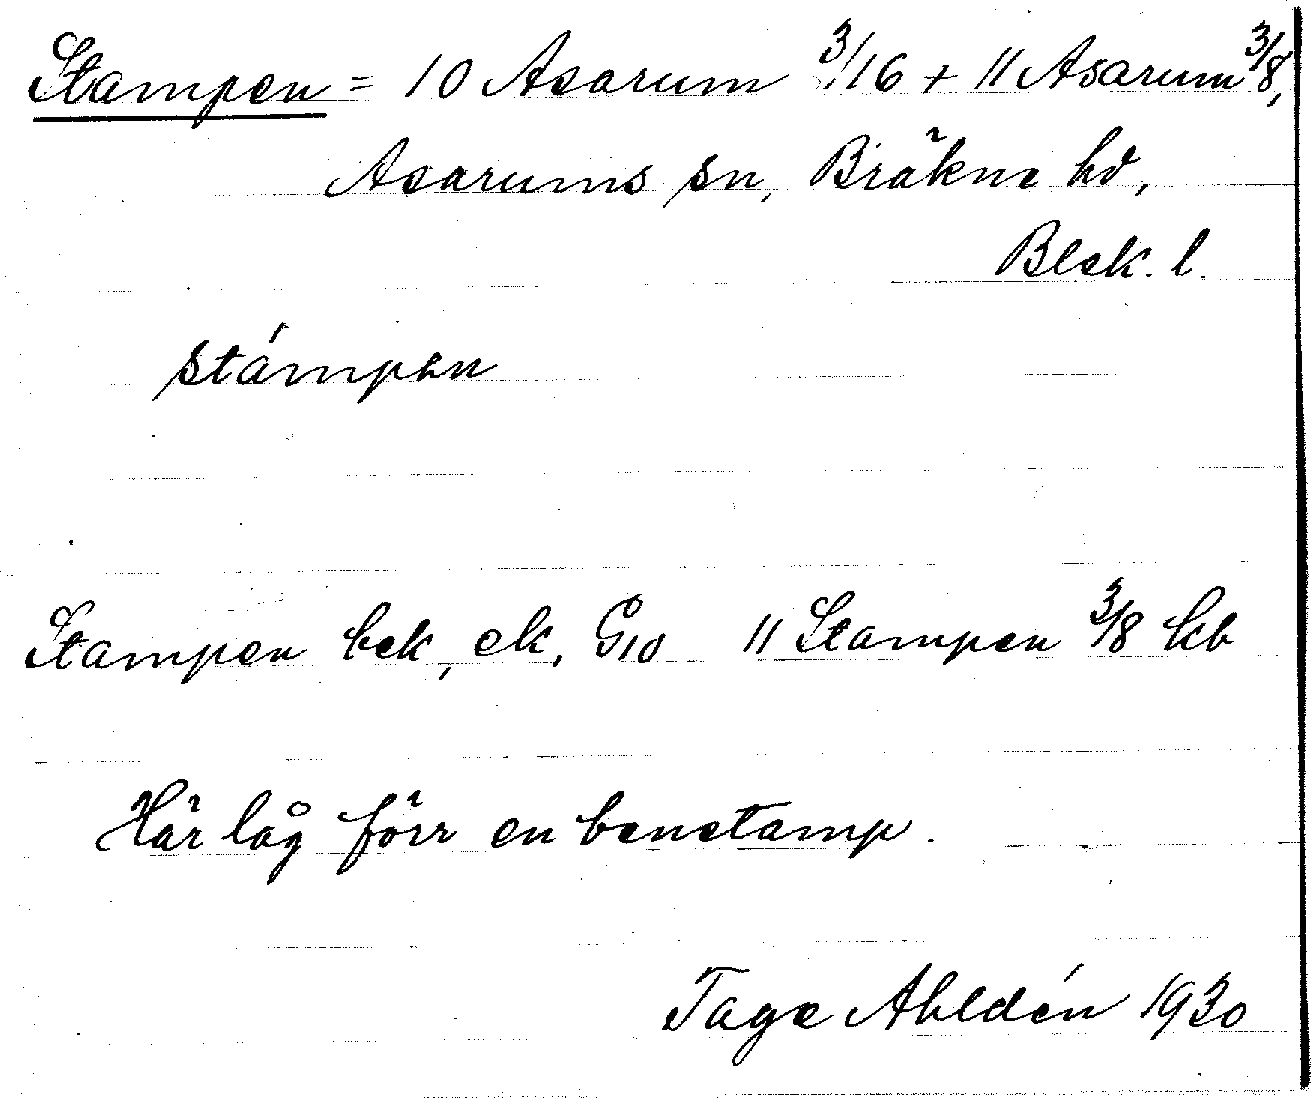 Stampen = 10 Asarum 3/16 + 11 Asarum 3/8,
Asarums sn, Bräkne hd,
Blek. l.
stámpən
Stampen bek, ek, G10 11 Stampen 3/8 kb
Här låg förr en benstamp.
Tage Ahldén 1930